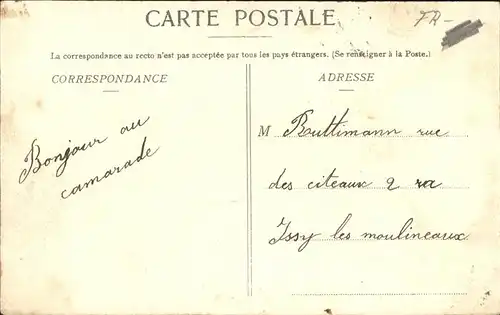 CARTE POSTALE
La correspondance au recto n'est pas acceptée par tous les pays étrangers. (Se renseigner à la Poste.)
CORRESPONDANCE
Bonjour au
camarade
ADRESSE
M Buttimann rue
des citeaux 2
Issy les moulineaux